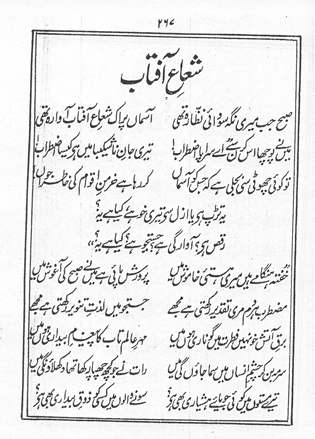 ۲۶۷
شعاعِ آفتاب
صبح جب میری نگہ سودائیِ نظّارہ تھی
آسماں پر اک شعاعِ آفتاب آوارہ تھی
میں نے پوچھا اس کرن سے اے سراپا اضطراب!
تیری جانِ ناشکیبا میں ہے کیسا اضطراب!
تو کوئی چھوٹی سی بجلی ہے کہ جس کو آسماں
کر رہا ہے خرمنِ اقوام کی خاطر جواں
یہ تڑپ ہے یا ازل سے تیری خو ہے کیا ہے یہ؟
رقص ہے؟ آوارگی ہے؟ جستجو ہے؟ کیا ہے یہ؟"
خفتہ ہنگامے ہیں میری ہستیِ خاموش میں
پرورش پائی ہے میں نے صبح کی آغوش میں
مضطرب ہر دم مری تقدیر رکھتی ہے مجھے
جستجو میں لذتِ تنویر رکھتی ہے مجھے
برقِ آتش خو نہیں فطرت میں گو ناری ہوں میں
مہرِ عالم تاب کا پیغامِ بیداری ہوں میں
سرمہ بن کر چشمِ انساں میں سما جاؤں گی میں
رات نے جو کچھ چھپا رکھا تھا دکھلاؤں گی میں
تیرے مستوں میں کوئی جویائے ہشیاری بھی ہے؟
سونے والوں میں کسی کو ذوقِ بیداری بھی ہے؟